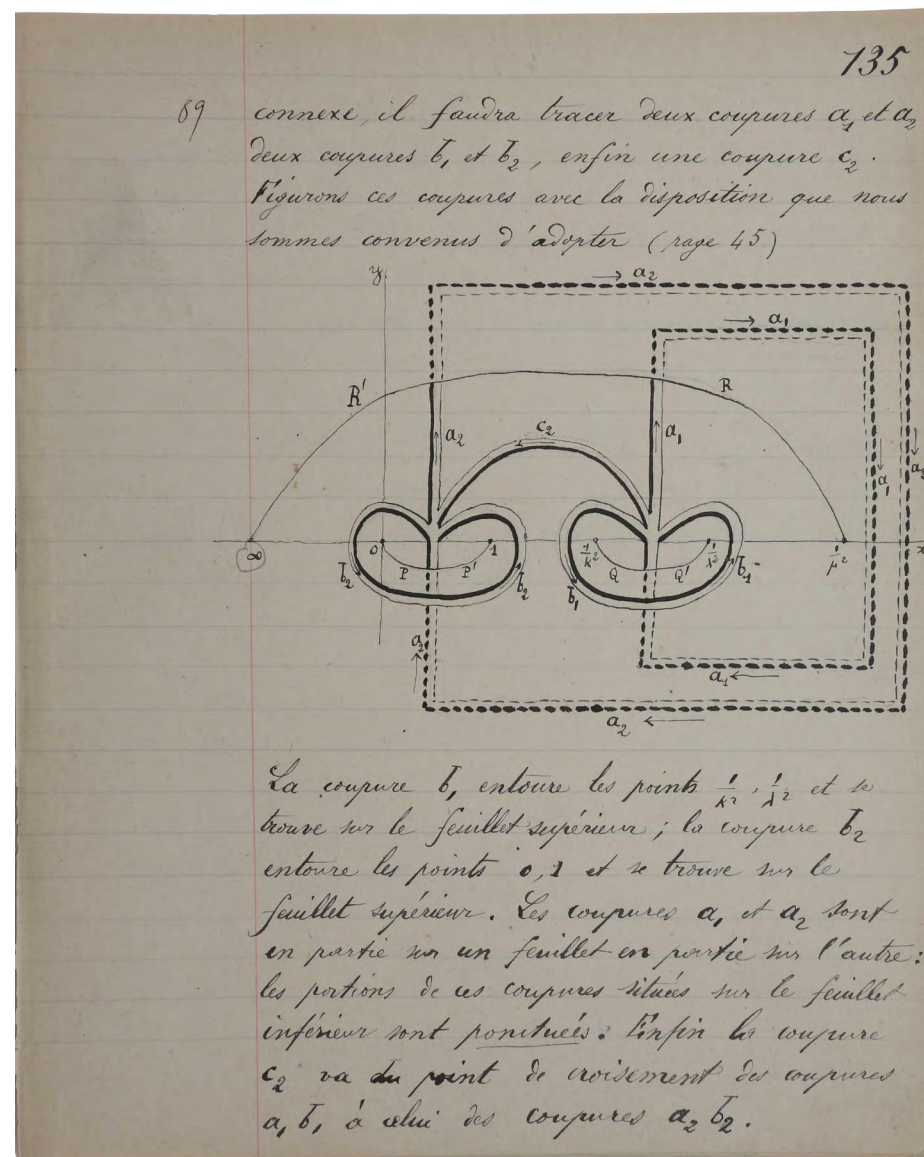 135
89
connexe, il faudra tracer deux coupures a₁ et a₂
deux coupures b₁ et b₂, enfin une coupure c₂.
Figurons ces coupures avec la disposition que nous
sommes convenus d'adopter (page 45)
y
a₂
a₁
R'
R
a₂
c₂
a₁
a₁
a₂
∞
0
1
1/k²
1/λ²
1/μ²
x
P
P'
Q
Q'
b₂
b₂
b₁
b₁
a₂
a₁
a₂
La coupure b₁ entoure les points 1/k², 1/λ² et se
trouve sur le feuillet supérieur ; la coupure b₂
entoure les points 0, 1 et se trouve sur le
feuillet supérieur. Les coupures a₁ et a₂ sont
en partie sur un feuillet en partie sur l'autre :
les portions de ces coupures situées sur le feuillet
inférieur sont ponctuées. Enfin la coupure
c₂ va du point de croisement des coupures
a₁ b₁ à celui des coupures a₂ b₂.